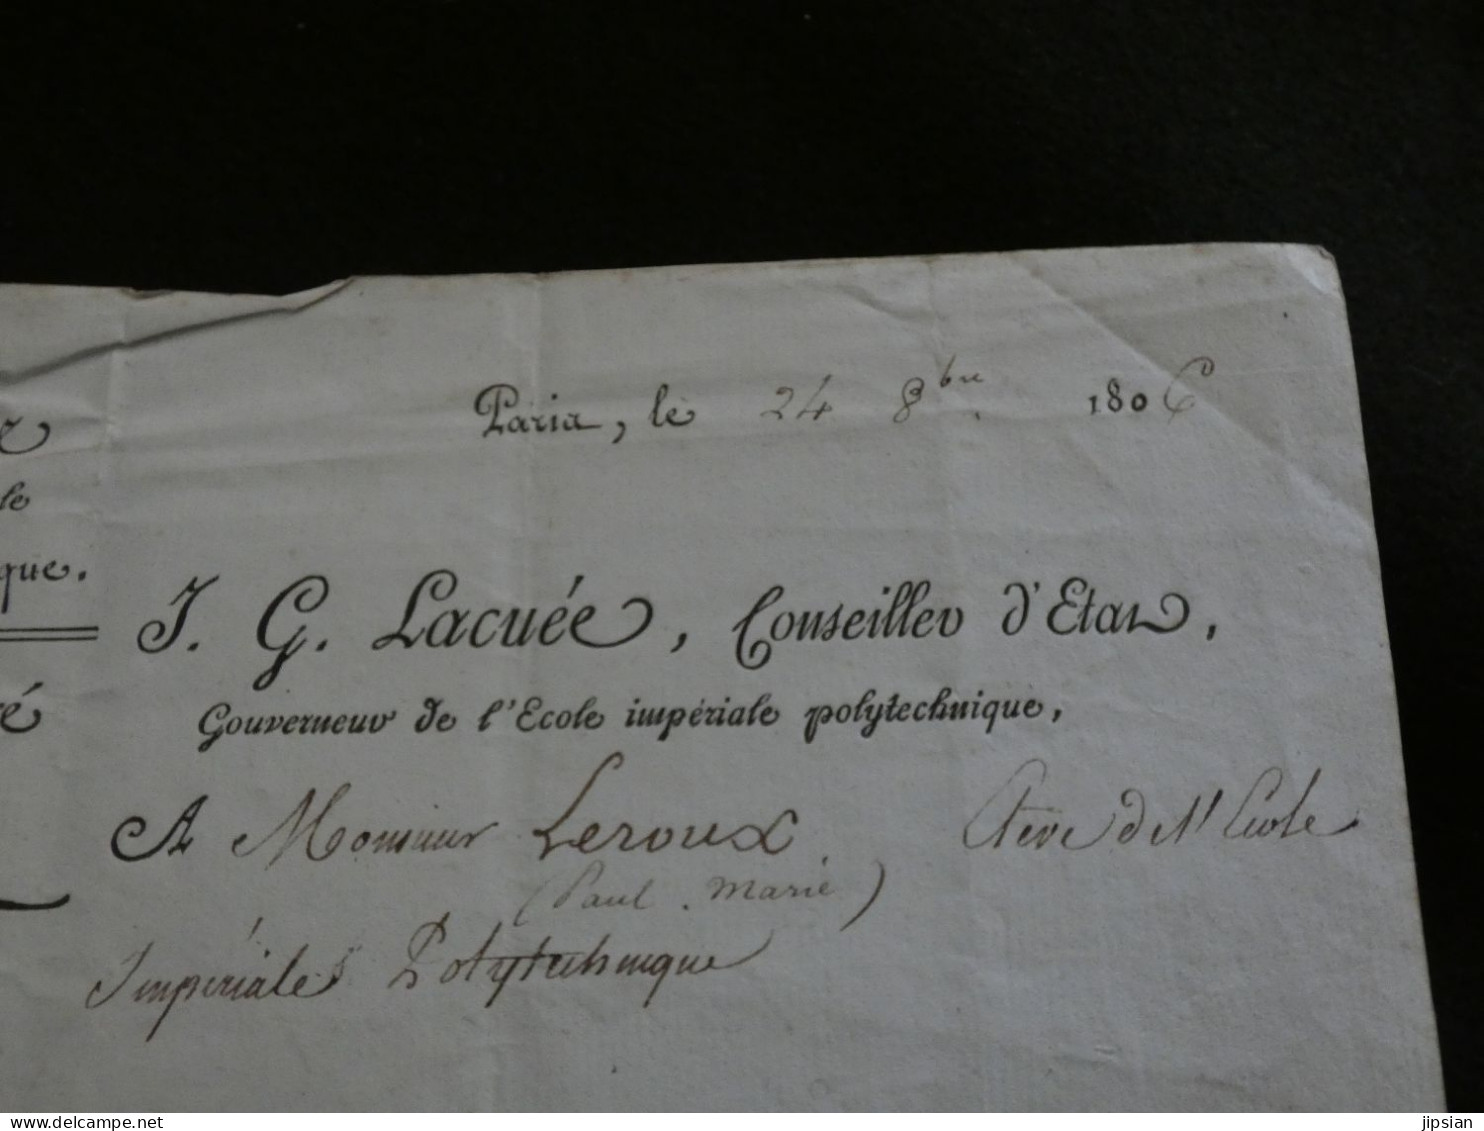 Paris, le 24 8bre 1806
le
que.
J. G. Lacuée, Conseiller d'Etat,
Gouverneur de l'Ecole impériale polytechnique,
A Monsieur Leroux Elève de l'Ecole
(Paul. Marie)
Impériale Polytechnique
www.delcampe.net
jipsian